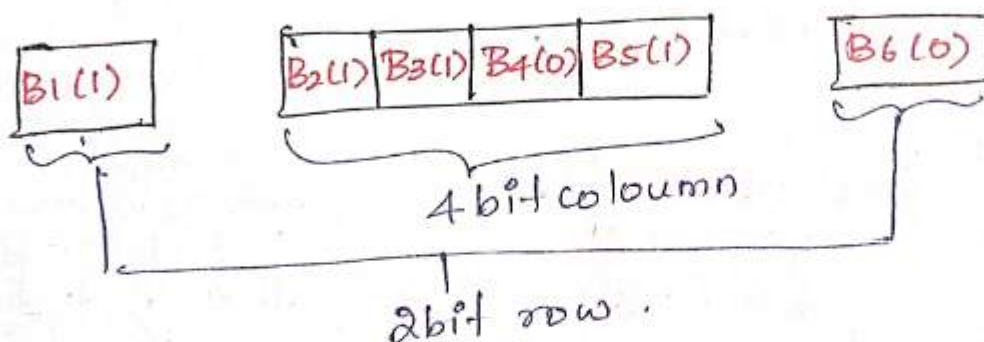 B1(1) B2(1) B3(1) B4(0) B5(1) B6(0)
4 bit coloumn
2bit row.